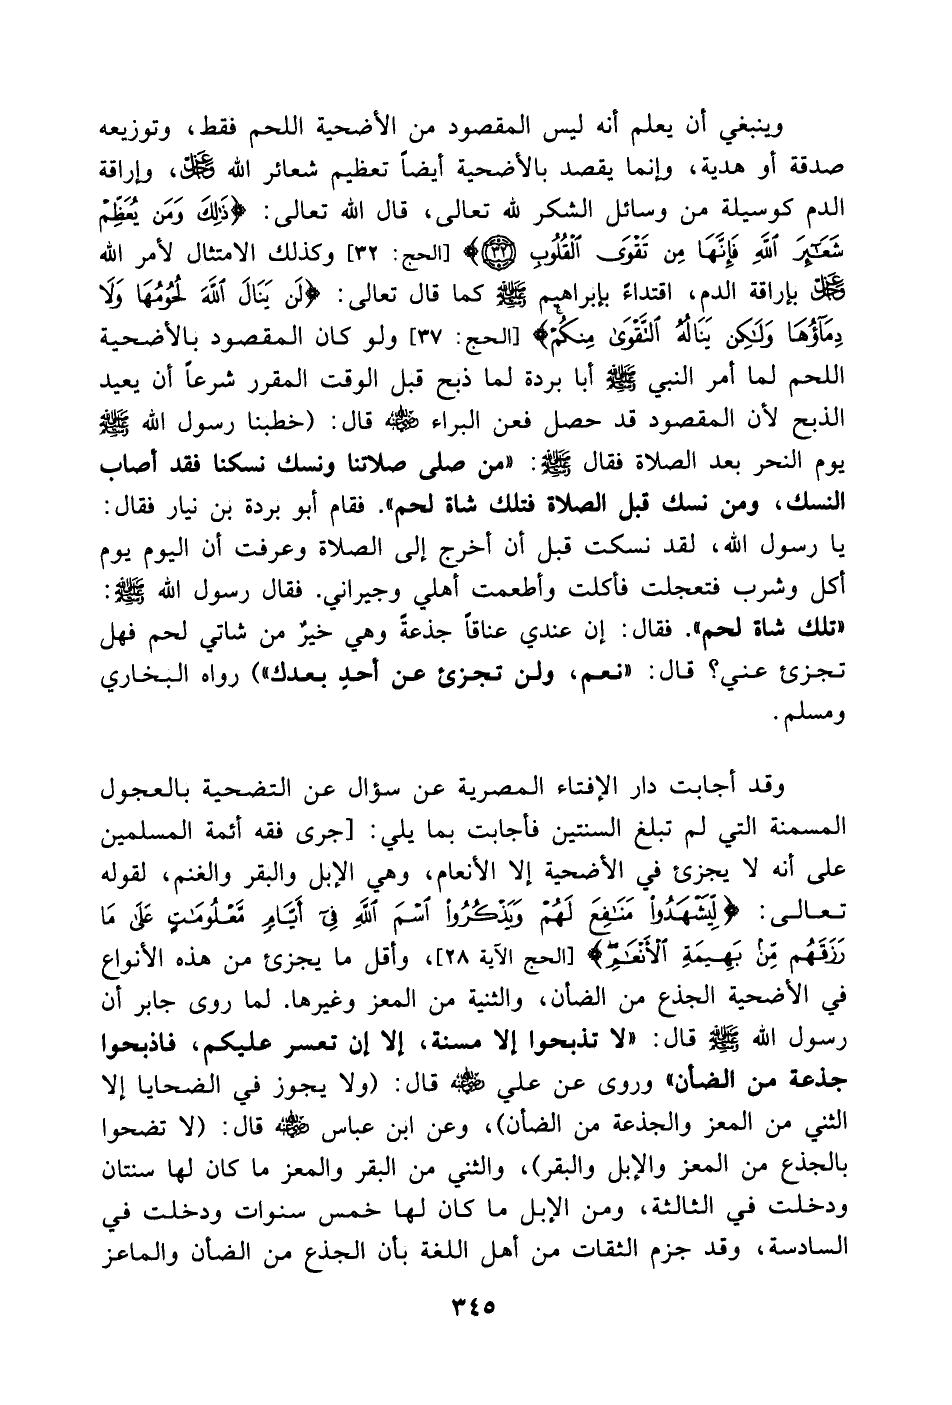 وينبغي أن يعلم أنه ليس المقصود من الأضحية اللحم فقط، وتوزيعه
صدقة أو هدية، وإنما يقصد بالأضحية أيضاً تعظيم شعائر الله ﷻ، وإراقة
الدم كوسيلة من وسائل الشكر لله تعالى، قال الله تعالى: ﴿ذَٰلِكَ وَمَن يُعَظِّمْ
شَعَٰٓئِرَ ٱللَّهِ فَإِنَّهَا مِن تَقْوَى ٱلْقُلُوبِ ٣٢﴾ [الحج: ٣٢] وكذلك الامتثال لأمر الله
ﷻ بإراقة الدم، اقتداءً بإبراهيم ﷺ كما قال تعالى: ﴿لَن يَنَالَ ٱللَّهَ لُحُومُهَا وَلَا
دِمَآؤُهَا وَلَٰكِن يَنَالُهُ ٱلتَّقْوَىٰ مِنكُمْ﴾ [الحج: ٣٧] ولو كان المقصود بالأضحية
اللحم لما أمر النبي ﷺ أبا بردة لما ذبح قبل الوقت المقرر شرعاً أن يعيد
الذبح لأن المقصود قد حصل فعن البراء رضي الله عنه قال: (خطبنا رسول الله ﷺ
يوم النحر بعد الصلاة فقال ﷺ: «من صلى صلاتنا ونسك نسكنا فقد أصاب
النسك، ومن نسك قبل الصلاة فتلك شاة لحم». فقام أبو بردة بن نيار فقال:
يا رسول الله، لقد نسكت قبل أن أخرج إلى الصلاة وعرفت أن اليوم يوم
أكل وشرب فتعجلت فأكلت وأطعمت أهلي وجيراني. فقال رسول الله ﷺ:
«تلك شاة لحم». فقال: إن عندي عناقاً جذعةً وهي خيرٌ من شاتي لحم فهل
تجزئ عني؟ قال: «نعم، ولن تجزئ عن أحدٍ بعدك») رواه البخاري
ومسلم.
وقد أجابت دار الإفتاء المصرية عن سؤال عن التضحية بالعجول
المسمنة التي لم تبلغ السنتين فأجابت بما يلي: [جرى فقه أئمة المسلمين
على أنه لا يجزئ في الأضحية إلا الأنعام، وهي الإبل والبقر والغنم، لقوله
تعالى: ﴿لِّيَشْهَدُوا۟ مَنَٰفِعَ لَهُمْ وَيَذْكُرُوا۟ ٱسْمَ ٱللَّهِ فِىٓ أَيَّامٍ مَّعْلُومَٰتٍ عَلَىٰ مَا
رَزَقَهُم مِّنۢ بَهِيمَةِ ٱلْأَنْعَٰمِ﴾ [الحج الآية ٢٨]، وأقل ما يجزئ من هذه الأنواع
في الأضحية الجذع من الضأن، والثنية من المعز وغيرها. لما روى جابر أن
رسول الله ﷺ قال: «لا تذبحوا إلا مسنة، إلا إن تعسر عليكم، فاذبحوا
جذعة من الضأن» وروى عن علي رضي الله عنه قال: (ولا يجوز في الضحايا إلا
الثني من المعز والجذعة من الضأن)، وعن ابن عباس رضي الله عنه قال: (لا تضحوا
بالجذع من المعز والإبل والبقر)، والثني من البقر والمعز ما كان لها سنتان
ودخلت في الثالثة، ومن الإبل ما كان لها خمس سنوات ودخلت في
السادسة، وقد جزم الثقات من أهل اللغة بأن الجذع من الضأن والماعز
٣٤٥